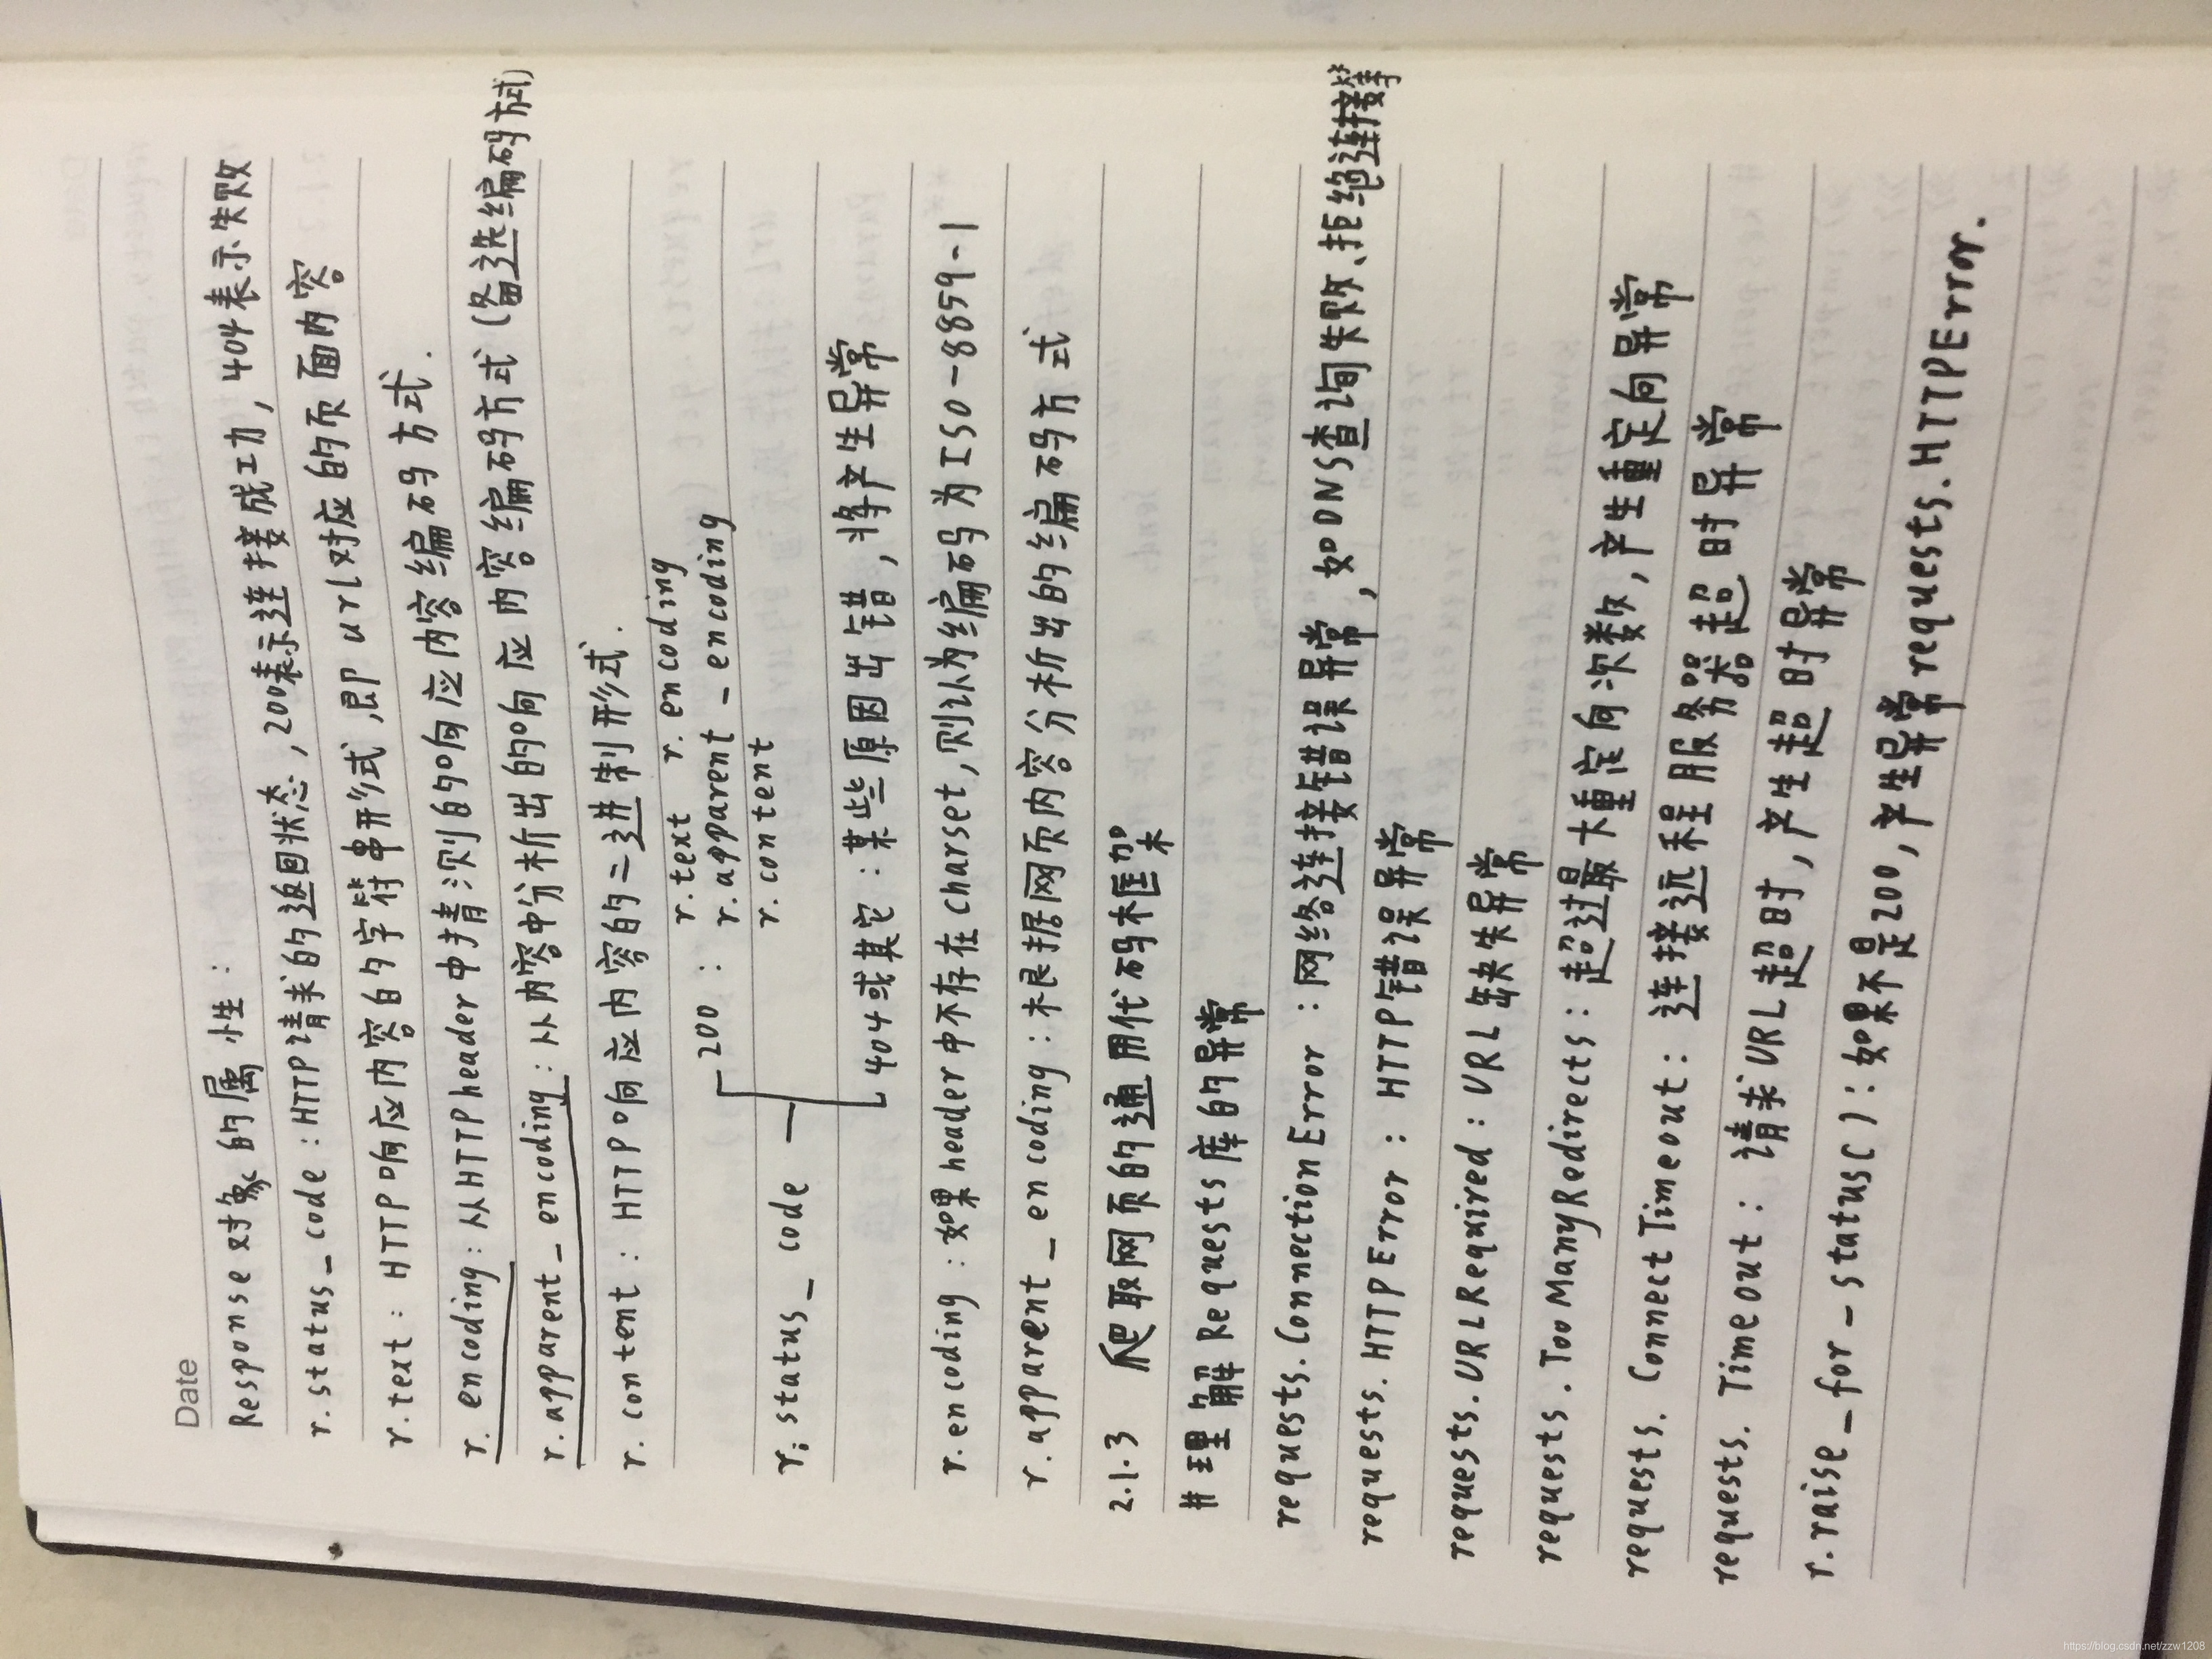 Date
Response对象的属性：
r.status_code：HTTP请求的返回状态，200表示连接成功，404表示失败
r.text：HTTP响应内容的字符串形式，即url对应的页面内容
r.encoding：从HTTP header中猜测的响应内容编码方式.
r.apparent_encoding：从内容中分析出的响应内容编码方式（备选编码方式）
r.content：HTTP响应内容的二进制形式.
r.status_code
200：
r.text r.encoding
r.apparent_encoding
r.content
404或其它：某些原因出错，将产生异常
r.encoding：如果header中不存在charset,则认为编码为ISO-8859-1
r.apparent_encoding：根据网页内容分析出的编码方式
2.1.3 爬取网页的通用代码框架
#理解Requests库的异常
requests.ConnectionError：网络连接错误异常，如DNS查询失败、拒绝连接等
requests.HTTPError：HTTP错误异常
requests.URLRequired：URL缺失异常
requests.TooManyRedirects：超过最大重定向次数，产生重定向异常
requests.ConnectTimeout：连接远程服务器超时异常
requests.Timeout：请求URL超时，产生超时异常
r.raise_for_status()：如果不是200，产生异常requests.HTTPError.
https://blog.csdn.net/zzw1208